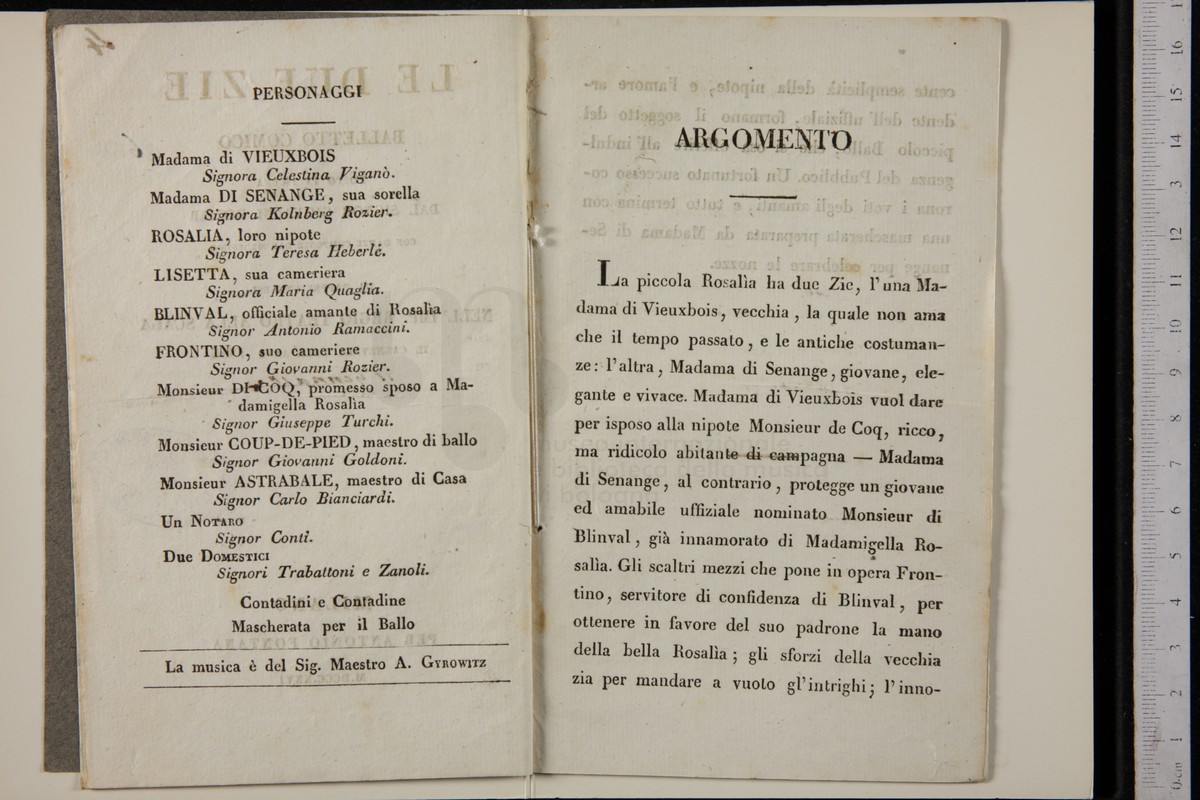 PERSONAGGI
Madama di VIEUXBOIS
Signora Celestina Viganò.
Madama DI SENANGE, sua sorella
Signora Kolnberg Rozier.
ROSALIA, loro nipote
Signora Teresa Heberlé.
LISETTA, sua cameriera
Signora Maria Quaglia.
BLINVAL, officiale amante di Rosalìa
Signor Antonio Ramaccini.
FRONTINO, suo cameriere
Signor Giovanni Rozier.
Monsieur DE COQ, promesso sposo a Ma-
damigella Rosalìa
Signor Giuseppe Turchi.
Monsieur COUP-DE-PIED, maestro di ballo
Signor Giovanni Goldoni.
Monsieur ASTRABALE, maestro di Casa
Signor Carlo Bianciardi.
Un NOTARO
Signor Conti.
Due DOMESTICI
Signori Trabattoni e Zanoli.
Contadini e Contadine
Mascherata per il Ballo
La musica è del Sig. Maestro A. GYROWITZ
ARGOMENTO
La piccola Rosalìa ha due Zie, l'una Ma-
dama di Vieuxbois, vecchia, la quale non ama
che il tempo passato, e le antiche costuman-
ze: l'altra, Madama di Senange, giovane, ele-
gante e vivace. Madama di Vieuxbois vuol dare
per isposo alla nipote Monsieur de Coq, ricco,
ma ridicolo abitante di campagna — Madama
di Senange, al contrario, protegge un giovane
ed amabile uffiziale nominato Monsieur di
Blinval, già innamorato di Madamigella Ro-
salìa. Gli scaltri mezzi che pone in opera Fron-
tino, servitore di confidenza di Blinval, per
ottenere in favore del suo padrone la mano
della bella Rosalìa; gli sforzi della vecchia
zia per mandare a vuoto gl'intrighi; l'inno-
museo internazionale
biblioteca della musica
di bologna
0-cm 1 2 3 4 5 6 7 8 9 10 11 12 13 14 15 16